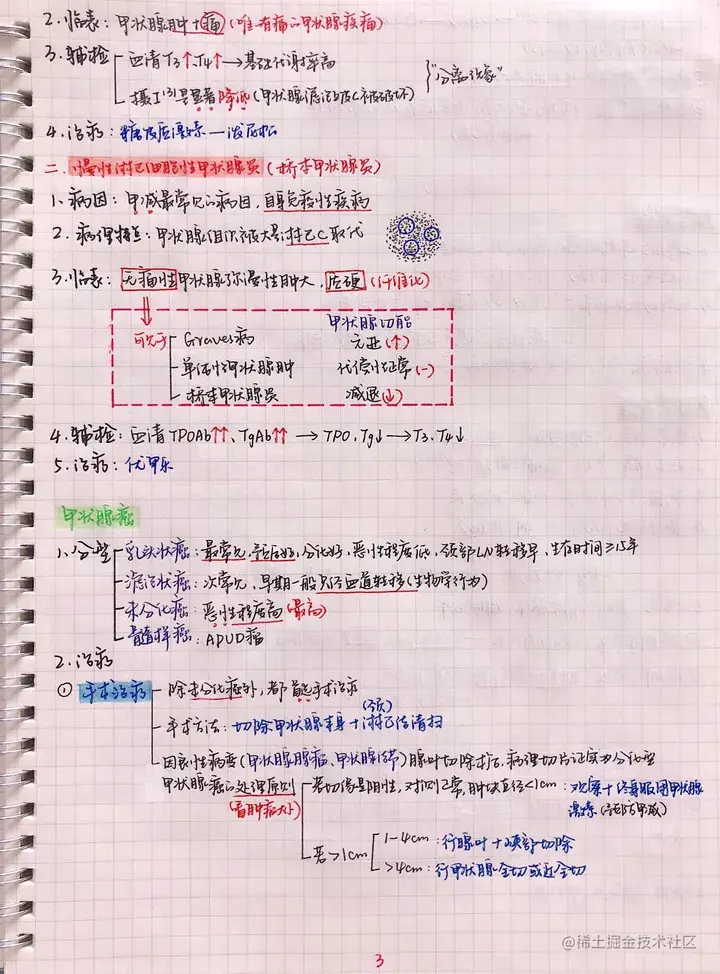 2. 临表：甲状腺肿+痛（唯一有痛的甲状腺疾病）
3. 辅检 血清T3↑.T4↑→基础代谢率高
摄I¹³¹量显著降低（甲状腺滤泡上皮C被破坏） } "分离现象"
4. 治疗：糖皮质激素—泼尼松
二.慢性淋巴细胞性甲状腺炎（桥本甲状腺炎）
1. 病因：甲减最常见的病因，自身免疫性疾病
2. 病理特点：甲状腺组织被大量淋巴C取代
3. 临表：无痛性甲状腺弥漫性肿大，质硬（纤维化）
甲状腺功能
可见于 Graves病 亢进(↑)
单纯性甲状腺肿 代偿性正常(-)
桥本甲状腺炎 减退(↓)
4. 辅检：血清TPOAb↑↑、TgAb↑↑ → TPO.Tg↓ → T3.T4↓
5. 治疗：优甲乐
甲状腺癌
1. 分型 乳头状癌：最常见，预后好，分化好，恶性程度低，颈部LN转移早，生存时间≥15年
滤泡状癌：次常见，早期一般只经血道转移（生物学行为）
未分化癌：恶性程度高（最高）
髓样癌：APUD瘤
2. 治疗
① 手术治疗 除未分化癌外，都首选手术治疗
手术方法：切除甲状腺本身+（颈）淋巴结清扫
因良性病变（甲状腺腺瘤、甲状腺结节）腺叶切除术后，病理切片证实为分化型
甲状腺癌的处理原则 若切缘是阴性，对侧正常，肿块直径<1cm：观察+终身服用甲状腺
（看肿瘤大小） 激素（预防甲减）
若>1cm 1-4cm：行腺叶+峡部切除
>4cm：行甲状腺全切或近全切
@稀土掘金技术社区
3